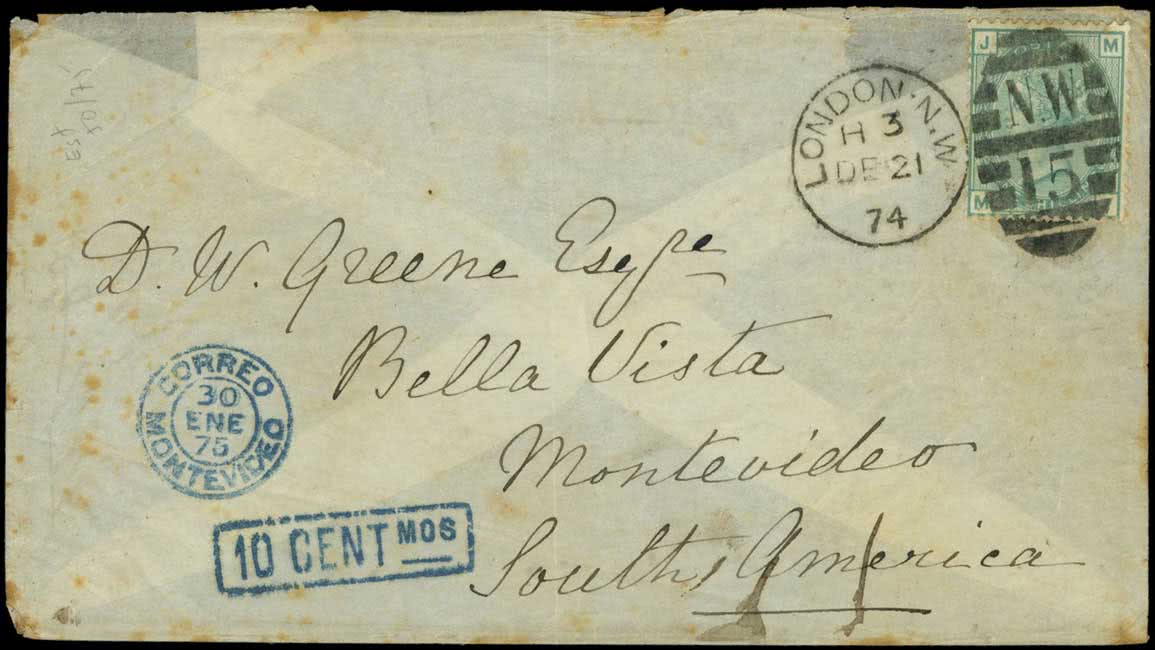 J M
NW
15
M
LONDON·N.W
H 3
DE 21
74
Est
50/75
D. W. Greene Esqre
Bella Vista
Montevideo
South America
CORREO
30
ENE
75
MONTEVIDEO
10 CENTMOS